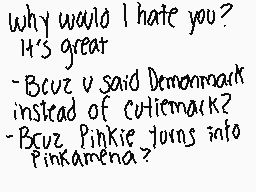 why would I hate you?
It's great
- Bcuz u said Demonmark
instead of cutiemark?
- Bcuz Pinkie turns into
Pinkamena?